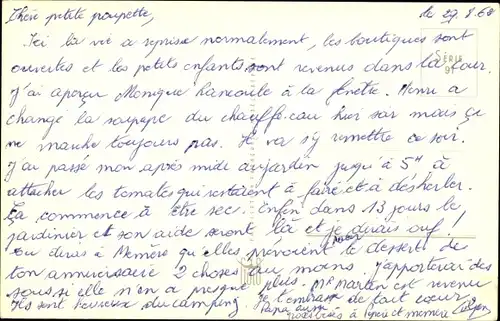 Chère petite poupette, le 29.8.68
Ici la vie a repris normalement, les boutiques sont
SÉRIE
ouvertes et les petits enfants sont revenus dans la cour.
J'ai aperçu Monique à la fenêtre. Menri a
changé la soupape du chauffe-eau hier soir mais ça
ne marche toujours pas. Il va s'y remettre ce soir.
J'ai passé mon après midi au jardin jusqu'à 5H à
attacher les tomates qui restaient à faire et à désherber.
Ça commence à être sec. Enfin dans 13 jours le
jardinier et son aide seront là et je dirais ouf!
Tu diras à Mémère qu'elles prévoient le dessert de
ton anniversaire 2 choses au moins. J'apporterai des
sous si elle n'en a presque plus. Mr Martin est revenu
Ils sont heureux du camping. Je t'embrasse de tout coeur
Papa aussi
bises à pépère et mémère